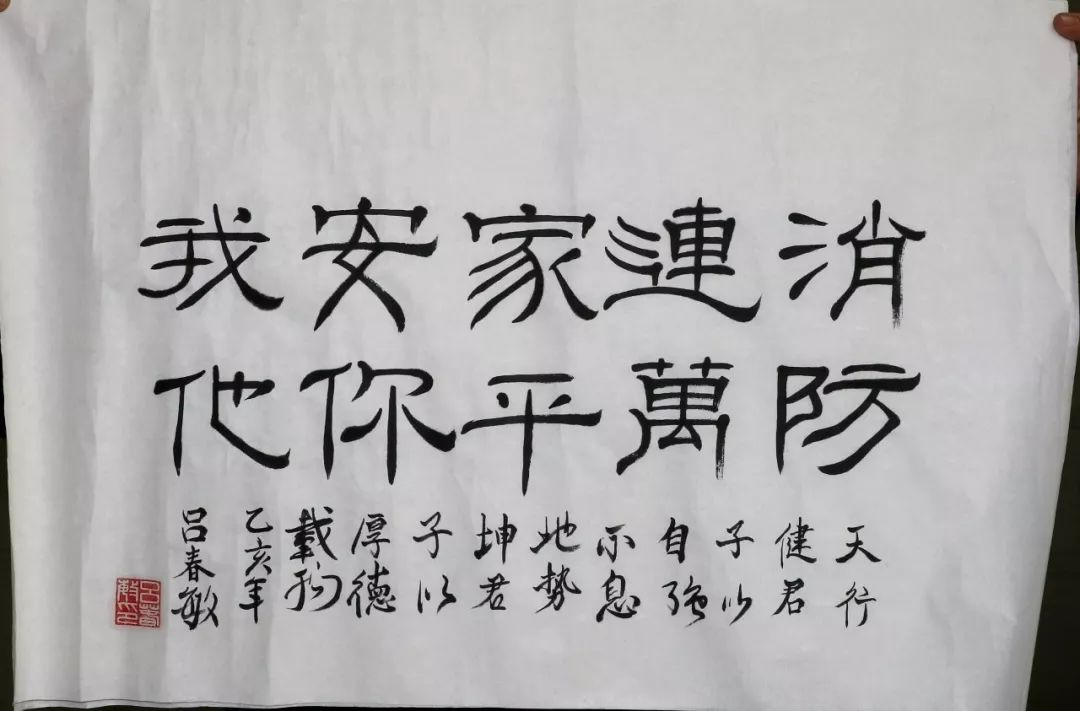 消防
連萬
家平
安你
我他
天行
健君
子以
自强
不息
地勢
坤君
子以
厚德
載物
乙亥年
吕春敏
吕春
敏印